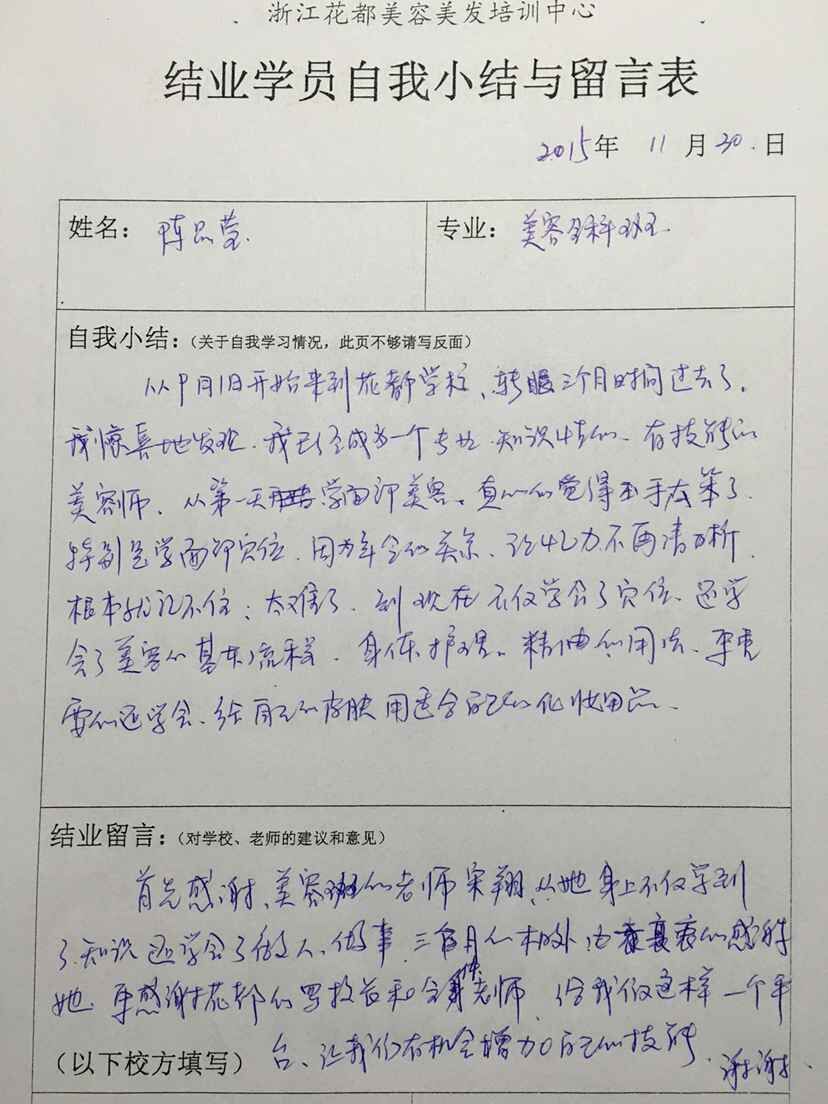 浙江花都美容美发培训中心
结业学员自我小结与留言表
2015年 11 月 30 日
姓名： 陈品莹 专业： 美容全科班
自我小结：（关于自我学习情况，此页不够请写反面）
从9月1日开始来到花都学校、转眼三个月时间过去了。
我惊喜地发现、我已经成为一个专业、知识 有技能的
美容师、从第一天 学面部美容。真的的觉得 手太笨了、
特别是学面部穴位、因为年令的关系、记忆力不再清晰、
根本就记不住；太难了、到现在不仅学会了穴位、还学
会了美容的基本流程、身体护理。精油的用法、更重
要的还学会、给自己的皮肤用适合自己的化妆用品、
结业留言：（对学校、老师的建议和意见）
首先感谢、美容班的老师宋翔、从她身上不仅学到
了知识还学会了做人、做事、三个月的相处、由衷的感谢
她、更感谢花都的 校长和全体老师、给我们这样一个平
（以下校方填写） 台、让我们有机会增加自己的技能、谢谢